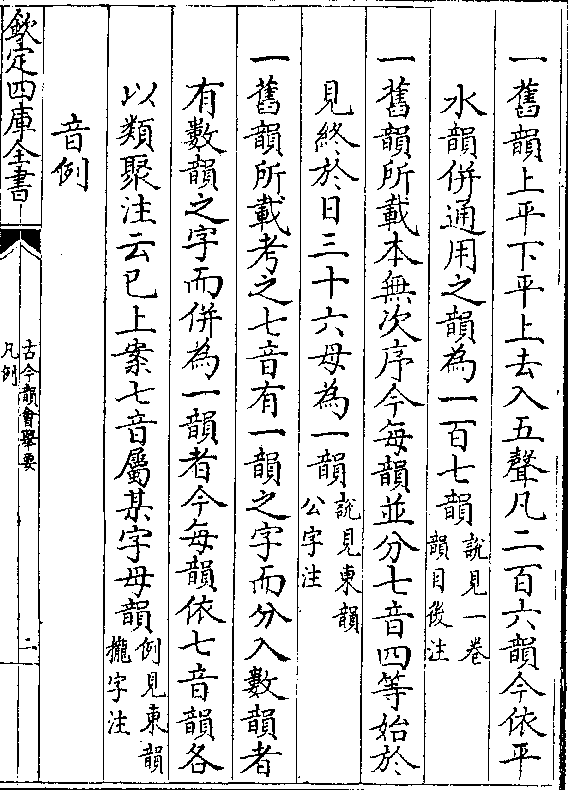 一舊韻上平下平上去入五聲凡二百六韻今依平
水韻併通用之韻為一百七韻說見一卷韻目後注
一舊韻所載本無次序今每韻並分七音四等始於
見終於日三十六母為一韻說見東韻公字注
一舊韻所載考之七音有一韻之字而分入數韻者
有數韻之字而併為一韻者今每韻依七音韻各
以類聚注云已上案七音屬某字母韻例見東韻攏字注
音例
欽定四庫全書
古今韻會舉要
凡例
二